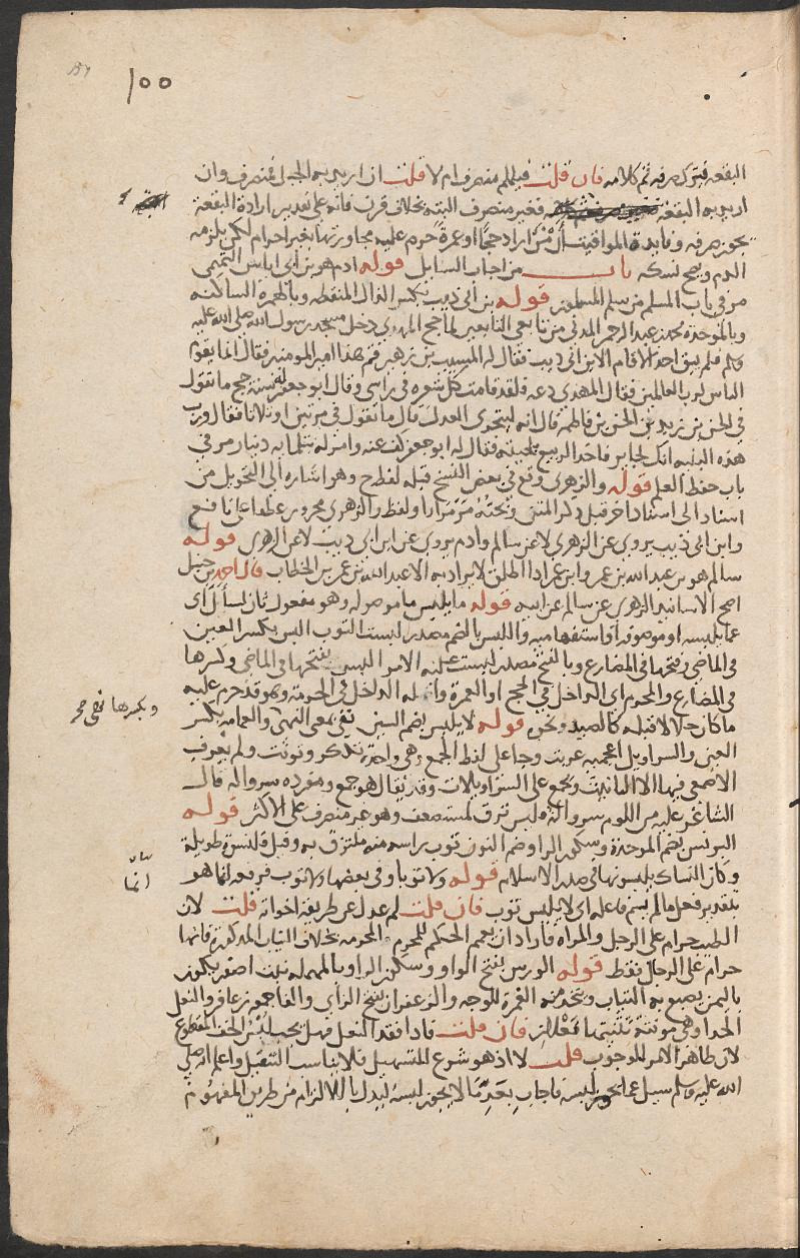 ١٥٥
البقعة فيترك صرفه تم كلامه فان قلت فيلملم منصرف ام لا قلت ان اريد به الجبل فمنصرف وان
اريد به البقعة فغير منصرف البتة بخلاف قرن فانه على تقدير ارادة البقعة
يجوز صرفه وفايدة المواقيت أن من اراد حجا او عمرة حرم عليه مجاوزتها بغير احرام لكن يلزمه
الدم ويصح نسكه باب من اجاب السايل قوله ادم هو بن ابي اياس التميمي
مر في باب المسلم من سلم المسلمون قوله بن ابي ذيب بكسر الذال المنقطه وبالهمزة الساكنه
وبالموحدة محمد بن عبد الرحمن المدني من تابعي التابعين لما حج المهدي دخل مسجد رسول الله صلى الله عليه
وسلم فلم يبق احد الا قام الا ابن ابي ذيب فقال له المسيب بن زهير قم هذا امير المومنين فقال انما يقوم
الناس لرب العالمين فقال المهدي دعه فلقد قامت كل شعره في راسي وقال ابو جعفر له سنة حج ما تقول
في الحسن بن زيد بن الحسن بن فاطمة قال انه ليتحرى العدل قال ما تقول في مرتين او ثلاثا فقال ورب
هذه البنيه انك لجاير فاخذ الربيع بلحيته فقال له ابو جعفر كف عنه وامر له بثلثمايه دينار مر في
باب حفظ العلم قوله والزهري وقع في بعض النسخ قبله لفظ ح وهو اشاره الى التحويل من
اسناد الى اسناد اخر قبل ذكر المتن وبحثه مر مرارا ولفظ والزهري مجرور عطفا على نافع
وابن ابي ذيب يروي عن الزهري لا عن سالم وادم يروي عن ابن ابي ذيب لا عن الزهري قوله
سالم هو بن عبد الله بن عمر وابن عمر اذا اطلق لا يراد به الا عبد الله بن عمر بن الخطاب قال احمد بن حنبل
اصح الاسانيد الزهري عن سالم عن ابيه قوله ما يلبس ما موصوله وهو مفعول ثان لسأل أي
عما يلبسه او موصوفه او استفهاميه واللبس بالضم مصدر لبست الثوب البس بكسر العين
في الماضي وفتحها في المضارع وبالفتح مصدر لبست عليه الامر البس بفتحها في الماضي وكسرها
في المضارع والمحرم اي الداخل في الحج او العمرة واصله الداخل في الحرمة وهو قد حرم عليه
ما كان حلالا قبله كالصيد ونحوه قوله لا يلبس بضم السين نفي بمعنى النهي والعمامة بكسر
وبكسرها نهي صح
العين والسراويل اعجميه عربت وجا على لفظ الجمع وهي واحدة تذكر وتونث ولم يعرف
الاصمعي فيها الا التانيث وتجمع على السراويلات وقد يقال هو جمع ومفرده سرواله قال
الشاعر عليه من اللوم سروالة فليس يرق لمستعطف وهو غير منصرف على الاكثر قوله
البرنس بضم الموحدة وسكون الرا وضم النون ثوب راسه منه ملتزق به وقيل قلنسوة طويله
وكان النساك يلبسونها في صدر الاسلام قوله ولا ثوبا وفي بعضها ولا ثوب فرفعه انما هو
بتقدير فعل ما لم يسم فاعله اي لا يلبس ثوب فان قلت لم عدل عن طريقة اخواته قلت لان
الطيب حرام على الرجل والمراة فاراد ان يعمم الحكم للمحرم والمحرمه بخلاف الثياب المذكورة فانها
حرام على الرجال فقط قوله الورس بفتح الواو وسكون الرا وبالمهمله نبت اصفر يكون
باليمن يصبغ به الثياب ويتخذ منه الغمرة للوجه والزعفران بفتح الزاي والفا جمعه زعافر والنعل
الحذا وهي مونثة تثنيتها نعلان فان قلت فاذا فقد النعل فهل يجب لبس الخف المقطوع
لان ظاهر الامر للوجوب قلت لا اذ هو شرع للتسهيل فلا يناسب التثقيل واعلم انه صلى
الله عليه وسلم سيل عما يجوز لبسه فاجاب بعد ما لا يجوز لبسه ليدل بالالتزام من طريق المفهوم